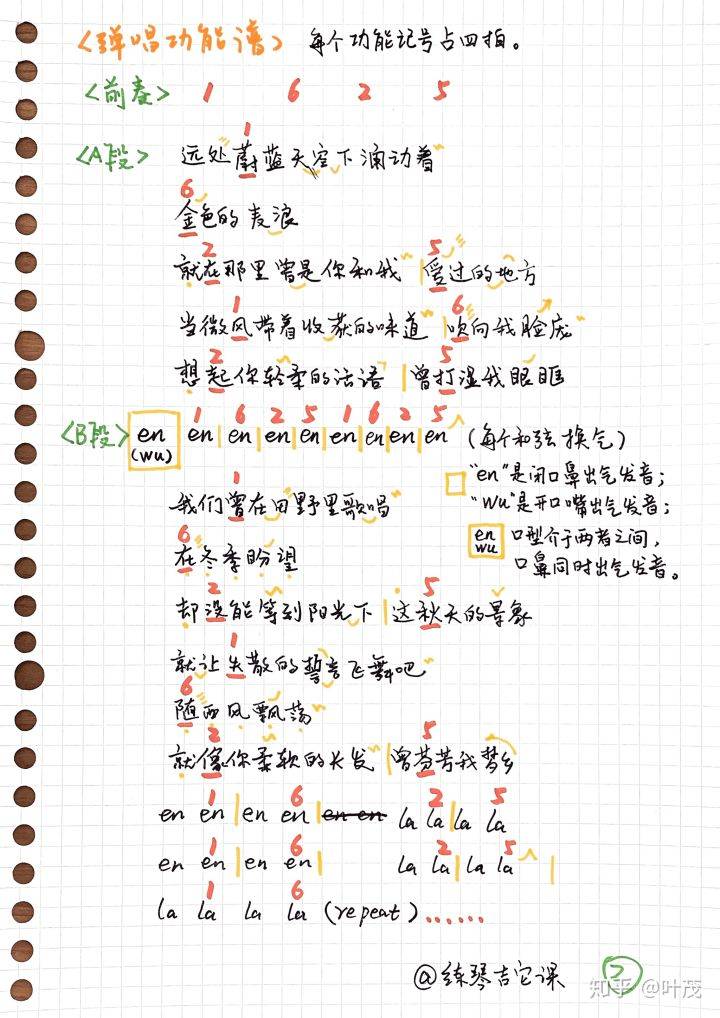 <弹唱功能谱> 每个功能记号占四拍。
<前奏> 1 6 2 5
1
<A段> 远处蔚蓝天空下涌动着
6
金色的麦浪
2 5
就在那里曾是你和我 | 爱过的地方
1 6
当微风带着收获的味道 | 吹向我脸庞
2 5
想起你轻柔的话语 | 曾打湿我眼眶
1 6 2 5 1 6 2 5
<B段> en en | en | en | en | en | en | en | en (每个和弦换气)
(wu)
"en"是闭口鼻出气发音；
"wu"是开口嘴出气发音；
en 口型介于两者之间，
wu 口鼻同时出气发音。
1
我们曾在田野里歌唱
6
在冬季盼望
2 5
却没能等到阳光下 | 这秋天的景象
1
就让失散的誓言飞舞吧
6
随西风飘荡
2 5
就像你柔软的长发 | 曾芬芳我梦乡
1 6 2 5
en en | en en | en en la la | la la
1 6 2 5
en en | en en | la la | la la |
1 6
la la la la (repeat)......
@练琴吉它课 2
知乎 @叶茂